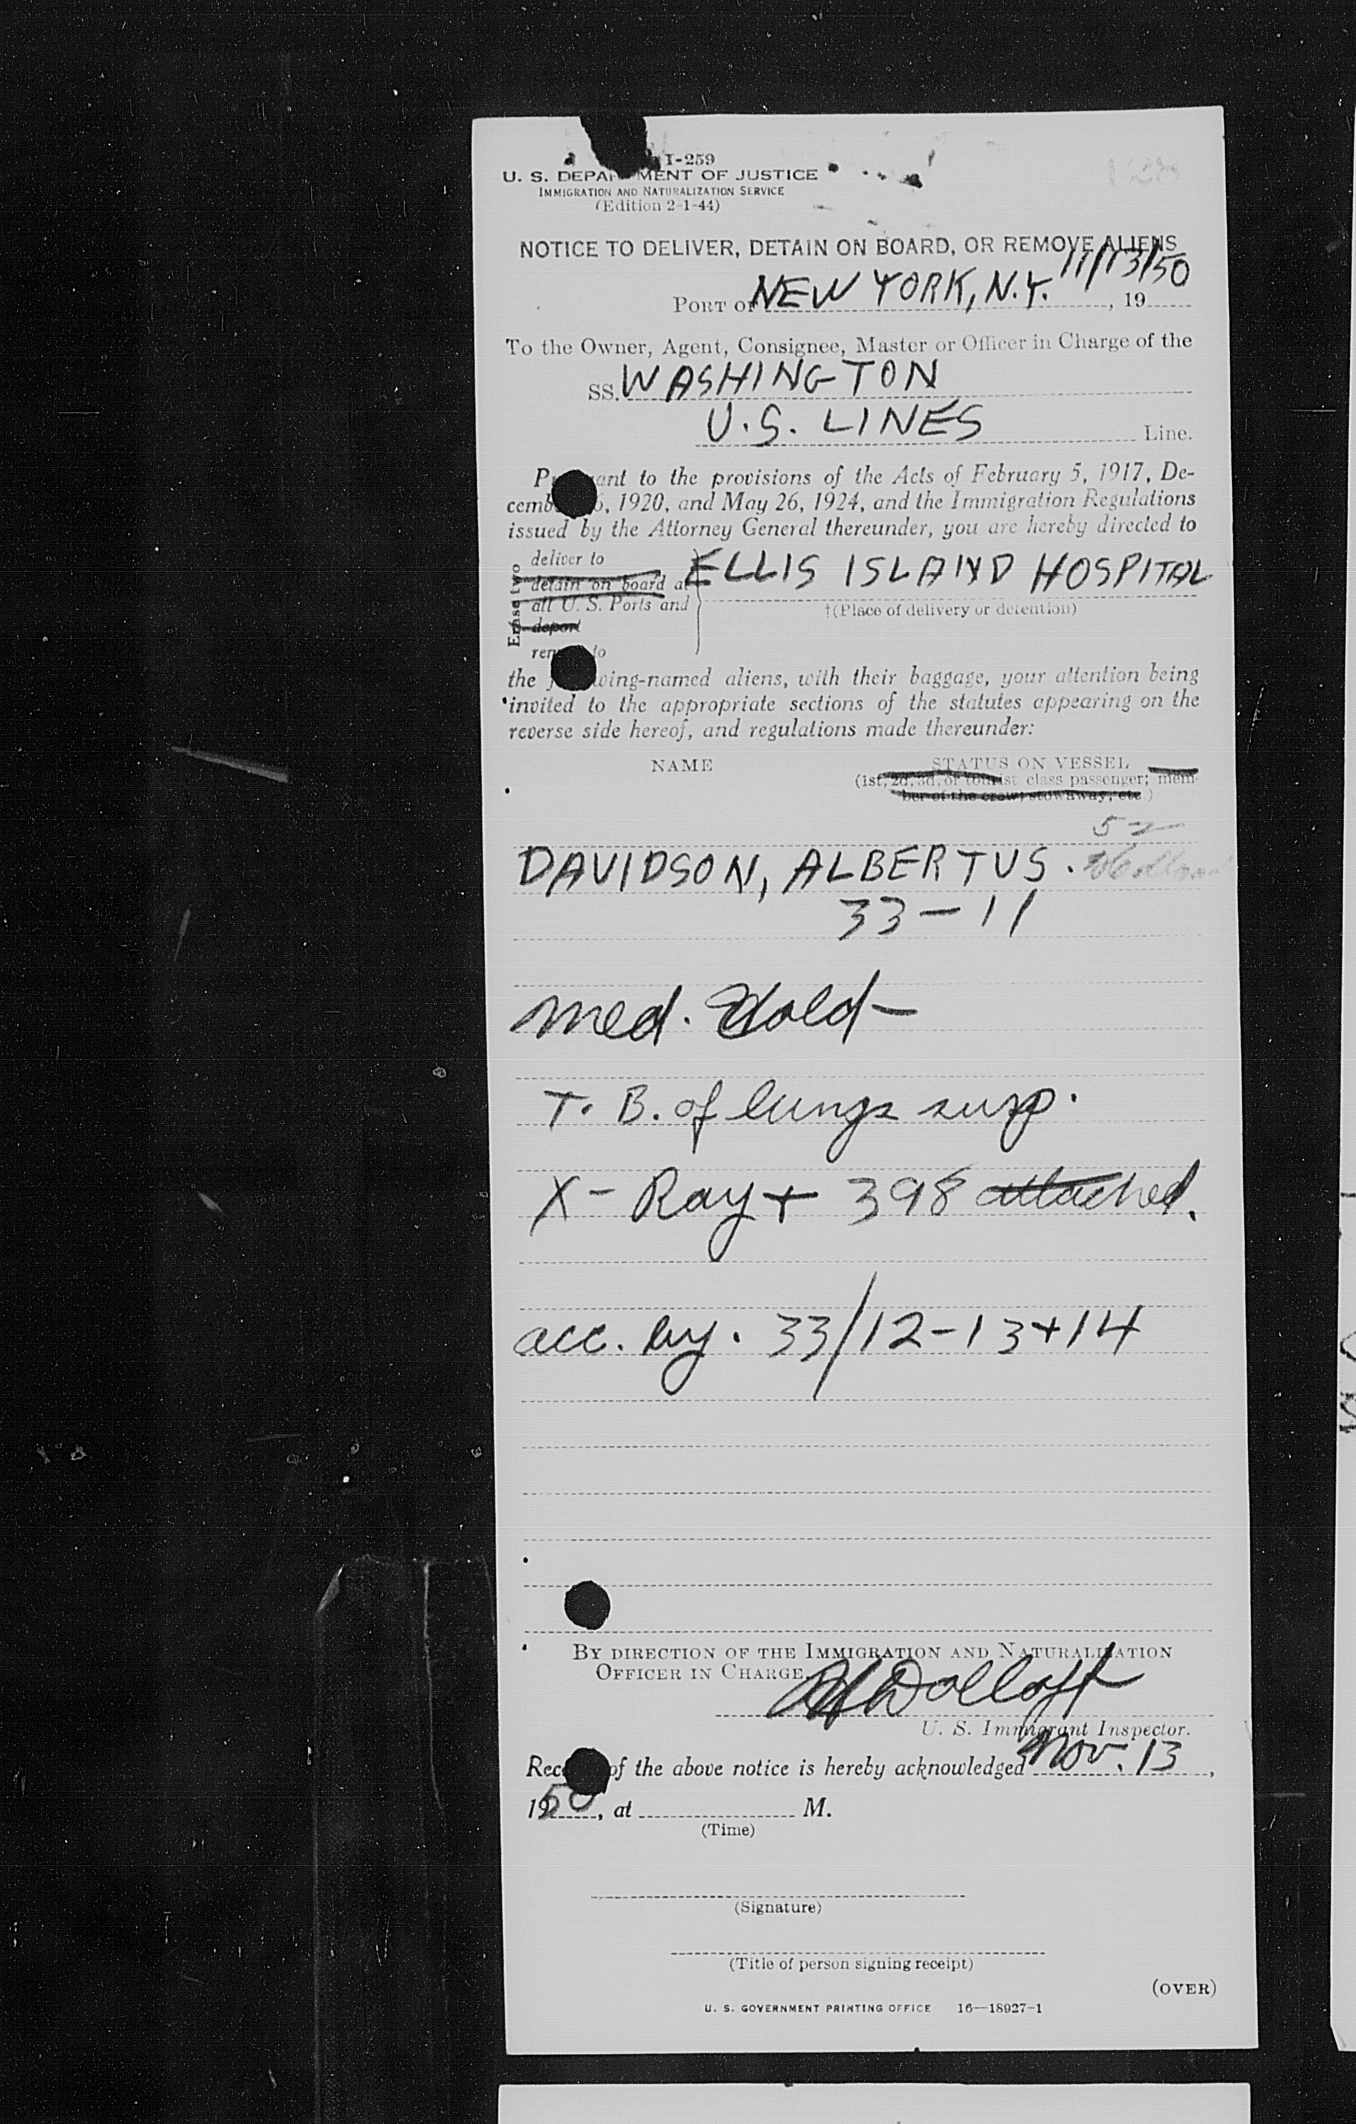 I-259
U. S. DEPARTMENT OF JUSTICE
IMMIGRATION AND NATURALIZATION SERVICE
(Edition 2-1-44)
NOTICE TO DELIVER, DETAIN ON BOARD, OR REMOVE ALIENS
11/13/50
PORT OF NEW YORK, N.Y. , 19
To the Owner, Agent, Consignee, Master or Officer in Charge of the
SS. WASHINGTON
U.S. LINES Line.
Pursuant to the provisions of the Acts of February 5, 1917, De-
cember 26, 1920, and May 26, 1924, and the Immigration Regulations
issued by the Attorney General thereunder, you are hereby directed to
Erase two
deliver to
detain on board at
all U. S. Ports and
deport
remove to
ELLIS ISLAND HOSPITAL
†(Place of delivery or detention)
the following-named aliens, with their baggage, your attention being
invited to the appropriate sections of the statutes appearing on the
reverse side hereof, and regulations made thereunder:
NAME STATUS ON VESSEL
(1st, 2d, 3d, or tourist class passenger; mem-
ber of the crew, stowaway, etc.)
52
DAVIDSON, ALBERTUS.
33-11
Med. Hold-
T. B. of lungs susp.
X-Ray + 398 attached.
acc. by. 33/12-13+14
BY DIRECTION OF THE IMMIGRATION AND NATURALIZATION
OFFICER IN CHARGE
Dolloff
U. S. Immigrant Inspector.
Receipt of the above notice is hereby acknowledged Nov. 13,
1950, at M.
(Time)
(Signature)
(Title of person signing receipt)
(OVER)
U. S. GOVERNMENT PRINTING OFFICE 16—18927-1